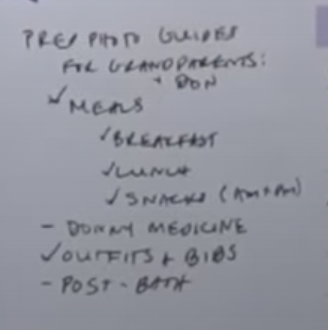 PREP PHOTO GUIDES
FOR GRANDPARENTS:
+ DON
✓ MEALS
✓ BREAKFAST
✓ LUNCH
✓ SNACKS (AM + PM)
- DONNY MEDICINE
✓ OUTFITS + BIBS
- POST-BATH